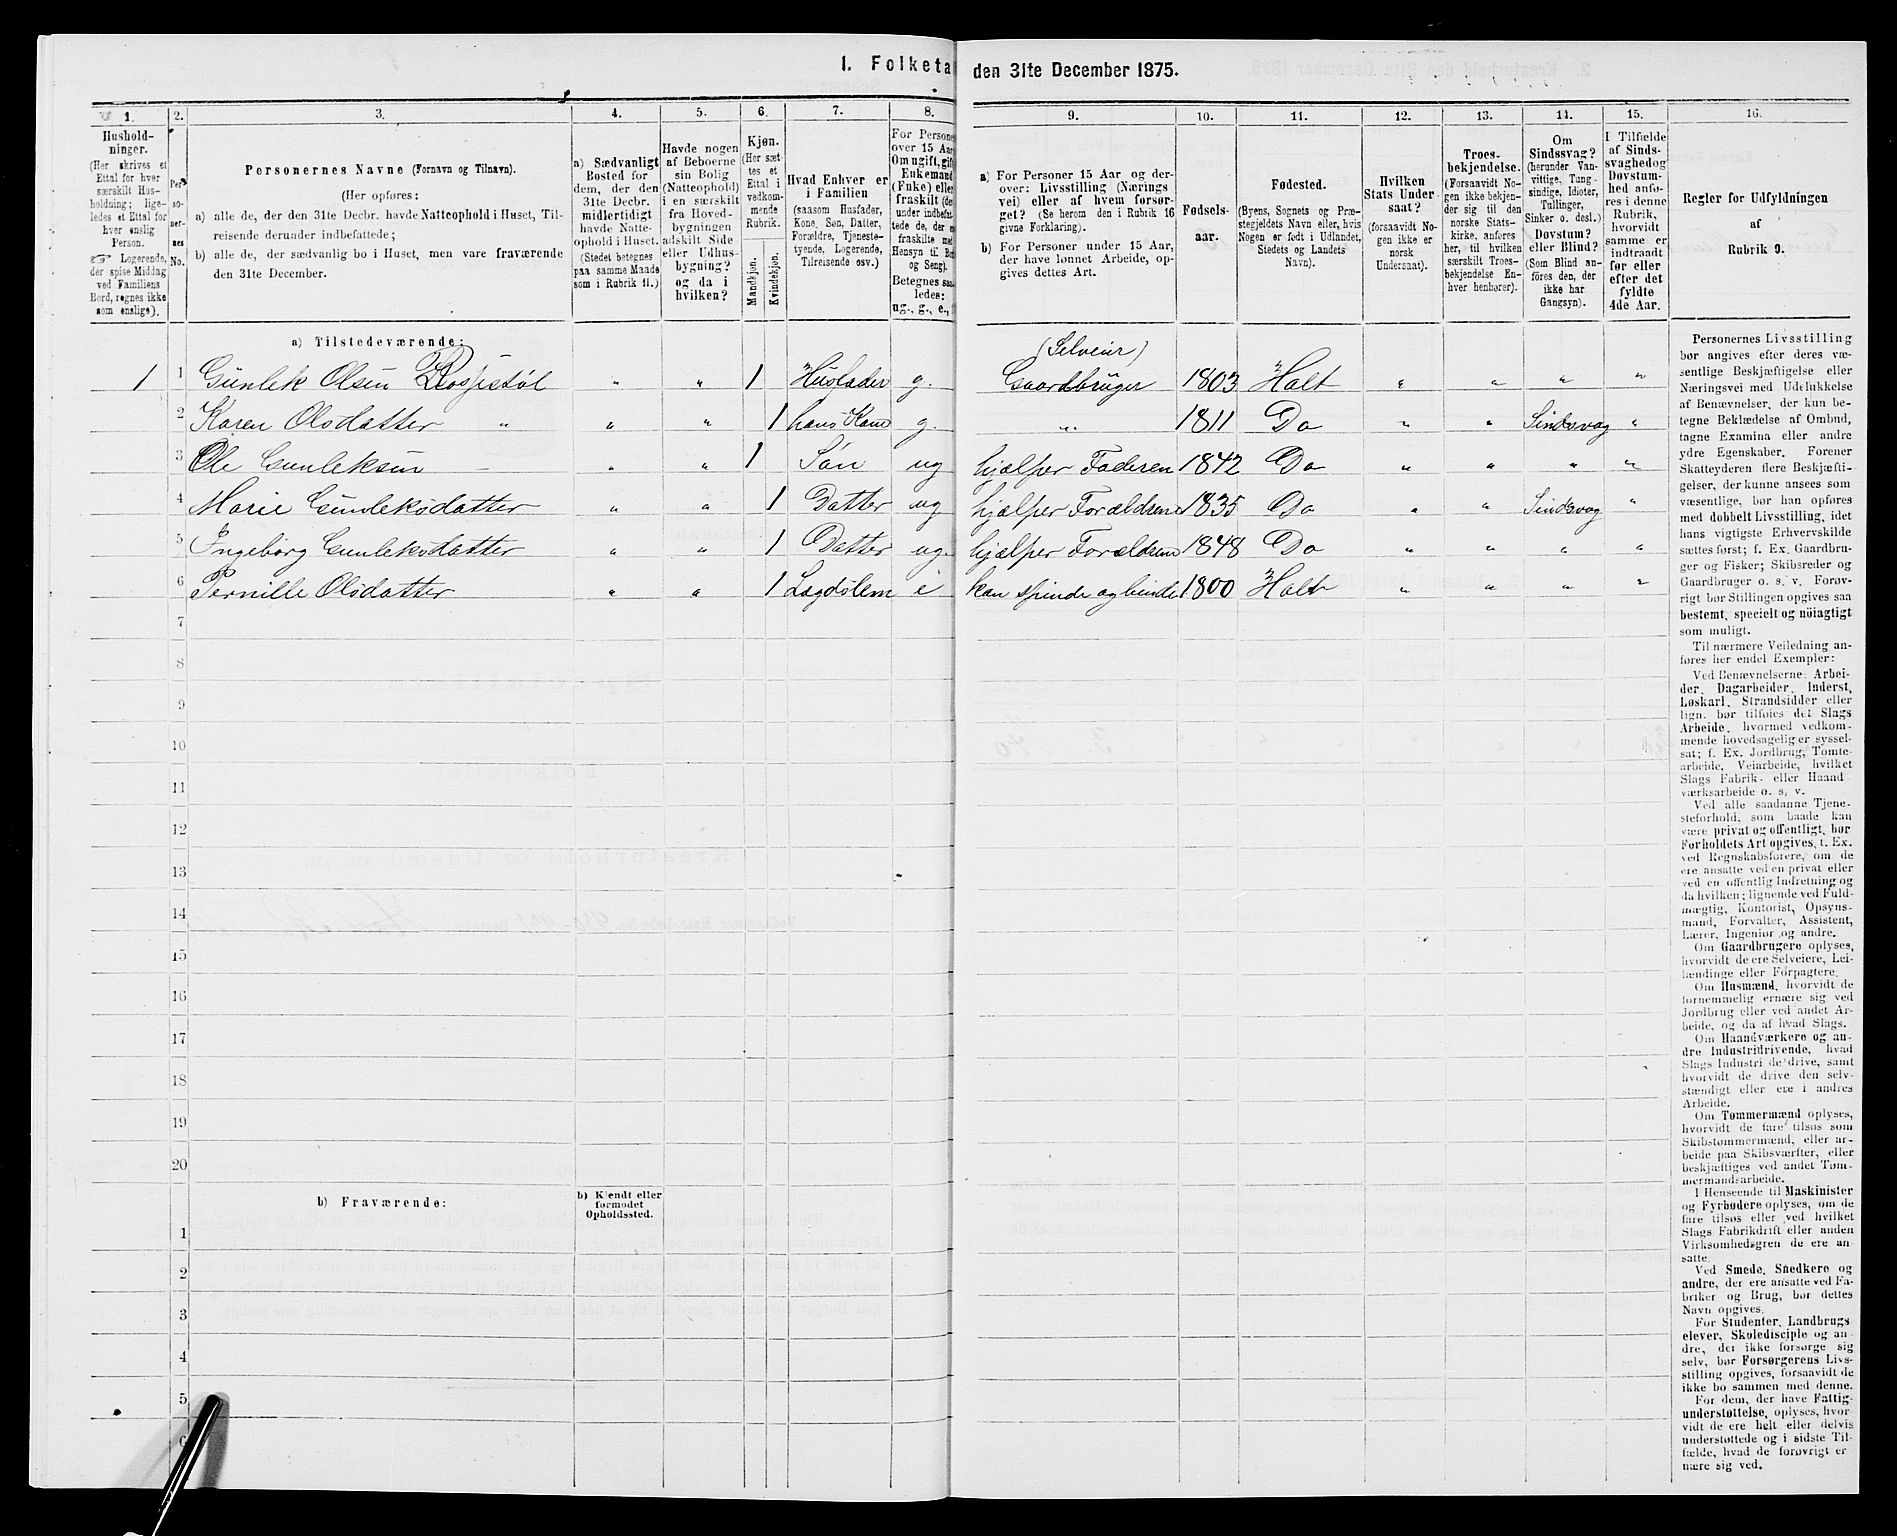 1. Folketa den 31te December 1875.
1. 2. 3. 4. 5. 6. 7. 8. 9. 10. 11. 12. 13. 14. 15. 16.
Hushold-
ninger.
(Her skrives et
Ettal for hver
særskilt Hus-
holdning; lige-
ledes et Ettal for
hver enslig
Person.
☞ Logerende,
der spise Middag
ved Familiens
Bord, regnes ikke
som enslige).
Per-
so-
ner-
nes
No.
Personernes Navne (Fornavn og Tilnavn).
(Her opføres:
a) alle de, der den 31te Decbr. havde Natteophold i Huset, Til-
reisende derunder indbefattede;
b) alle de, der sædvanlig bo i Huset, men vare fraværende
den 31te December.
a) Sædvanligt
Bosted for
dem, der den
31te Decbr.
midlertidigt
havde Natte-
ophold i Huset.
(Stedet betegnes
paa samme Maade
som i Rubrik 11.)
Havde nogen
af Beboerne
sin Bolig
(Natteophold)
i en særskilt
fra Hoved-
bygningen
adskilt Side
eller Udhus-
bygning?
og da i
hvilken?
Kjøn.
(Her sæt-
tes et
Ettal i
vedkom-
mende
Rubrik.
Mandkjøn.
Kvindekjøn.
Hvad Enhver er
i Familien
(saasom Husfader,
Kone, Søn, Datter,
Forældre, Tjeneste-
tyende, Logerende,
Tilreisende osv.)
For Persone
over 15 Aar
Om ugift, gift
Enkemand
(Enke) eller
fraskilt (der-
under indbefat-
tede de, der
fraskilte med
Hensyn til Bo
og Seng).
Betegnes saa-
ledes:
ug., g., e.,
a) For Personer 15 Aar og der-
over: Livsstilling (Nærings
vei) eller af hvem forsør-
get? (Se herom den i Rubrik 16
givne Forklaring).
b) For Personer under 15 Aar,
der have lønnet Arbeide, op-
gives dettes Art.
Fødsels-
aar.
Fødested.
(Byens, Sognets og Præ-
stegjeldets Navn eller, hvis
Nogen er født i Udlandet,
Stedets og Landets
Navn).
Hvilken
Stats Under-
saat?
(forsaavidt No-
gen ikke er
norsk
Undersaat).
Troes-
bekjendelse.
(Forsaavidt No-
gen ikke bekjen-
der sig til den
norske Stats-
kirke, anføres
her, til hvilken
særskilt Troes-
bekjendelse En-
hver henhører).
Om
Sindssvag?
(herunder Van-
vittige, Tung-
sindige, Idioter,
Tullinger,
Sinker o. desl.)
Døvstum?
eller Blind?
(Som Blind an-
føres den, der
ikke har
Gangsyn).
I Tilfælde
af Sinds-
svaghed og
Døvstum-
hed anfø-
res i denne
Rubrik,
hvorvidt
samme er
indtraadt
før eller
efter det
fyldte
4de Aar.
Regler for Udfyldningen
af
Rubrik 9.
a) Tilstedeværende:
1 1 Gunlek Olsen Rossestøl " " 1 Husfader g. (Selveier) Gaardbruger 1803 Holt " " " "
2 Karen Olsdatter " " " 1 hans Kone g. " 1811 Do " " Sindsvag "
3 Ole Gunleksen - " " 1 Søn ug hjælper Faderen 1842 Do " " " "
4 Marie Gunleksdatter " " 1 Datter ug. hjælper Forældrene 1835 Do " " Sindsvag "
5 Ingeborg Gunleksdatter " " 1 Datter ug. hjælper Forældrene 1848 Do " " " "
6 Pernille Olsdatter " " 1 Lægdslem e kan spinde og binde 1800 Holt " " " "
7
8
9
10
11
12
13
14
15
16
17
18
19
20
b) Fraværende:
b) Kjendt eller
formodet
Opholdssted.
1
2
3
4
5
6
Personernes Livsstilling
bør angives efter deres væ-
sentlige Beskjæftigelse eller
Næringsvei med Udelukkelse
af Benævnelser, der kun be-
tegne Beklædelse af Ombud,
tagne Examina eller andre
ydre Egenskaber. Forener
Skatteyderen flere Beskjæfti-
gelser, der kunne ansees som
væsentlige, bør han opføres
med dobbelt Livsstilling, idet
hans vigtigste Erhvervskilde
sættes først; f. Ex. Gaardbru-
ger og Fisker; Skibsreder og
Gaardbruger o. s. v. Forøv-
rigt bør Stillingen opgives saa
bestemt, specielt og nöiagtigt
som muligt.
Til nærmere Veiledning an-
føres her endel Exempler:
Ved Benævnelserne: Arbei-
der, Dagarbeider, Inderst,
Løskarl, Strandsidder eller
lign. bør tilføies det Slags
Arbeide, hvormed vedkom-
mende hovedsagelig er syssel-
sat; f. Ex. Jordbrug, Tomte-
arbeide, Veiarbeide, hvilket
Slags Fabrik- eller Haand-
værksarbeide o. s. v.
Ved alle saadanne Tjene-
steforhold, som baade kan
være privat og offentligt, bør
Forholdets Art opgives, t. Ex.
ved Regnskabsførere, om de
ere ansatte ved en privat eller
ved en offentlig Indretning og
da hvilken; lignende ved Fuld-
mægtig, Kontorist, Opsyns-
mand, Forvalter, Assistent,
Lærer, Ingeniør og andre.
Om Gaardbrugere oplyses,
hvorvidt de ere Selveiere, Lei-
lændinge eller Forpagtere.
Om Husmænd, hvorvidt de
fornemmelig ernære sig ved
Jordbrug eller ved andet Ar-
beide, og da af hvad Slags.
Om Haandværkere og an-
dre Industridrivende, hvad
Slags Industri de drive, samt
hvorvidt de drive den selv-
stændigt eller ere i andres
Arbeide.
Om Tømmermænd oplyses,
hvorvidt de fare tilsøs som
Skibstømmermænd, eller ar-
beide paa Skibsværfter, eller
beskjæftiges ved andet Tøm-
mermandsarbeide.
I Henseende til Maskinister
og Fyrbødere oplyses, om de
fare tilsøs eller ved hvilket
Slags Fabrikdrift eller anden
Virksomhedsgren de ere an-
satte.
Ved Smede, Snedkere og
andre, der ere ansatte ved Fa-
briker og Brug, bør dettes
Navn opgives.
For Studenter, Landbrugs
elever, Skoledisciple og an-
dre, der ikke forsørge sig
selv, bør Forsørgerens Livs-
stilling opgives, forsaavidt de
ikke bo sammen med denne.
For dem, der have Fattig-
understøttelse, oplyses, hvor-
vidt de ere helt eller delvis
understøttede og i sidste Til-
fælde, hvad de forøvrigt er-
nære sig ved.